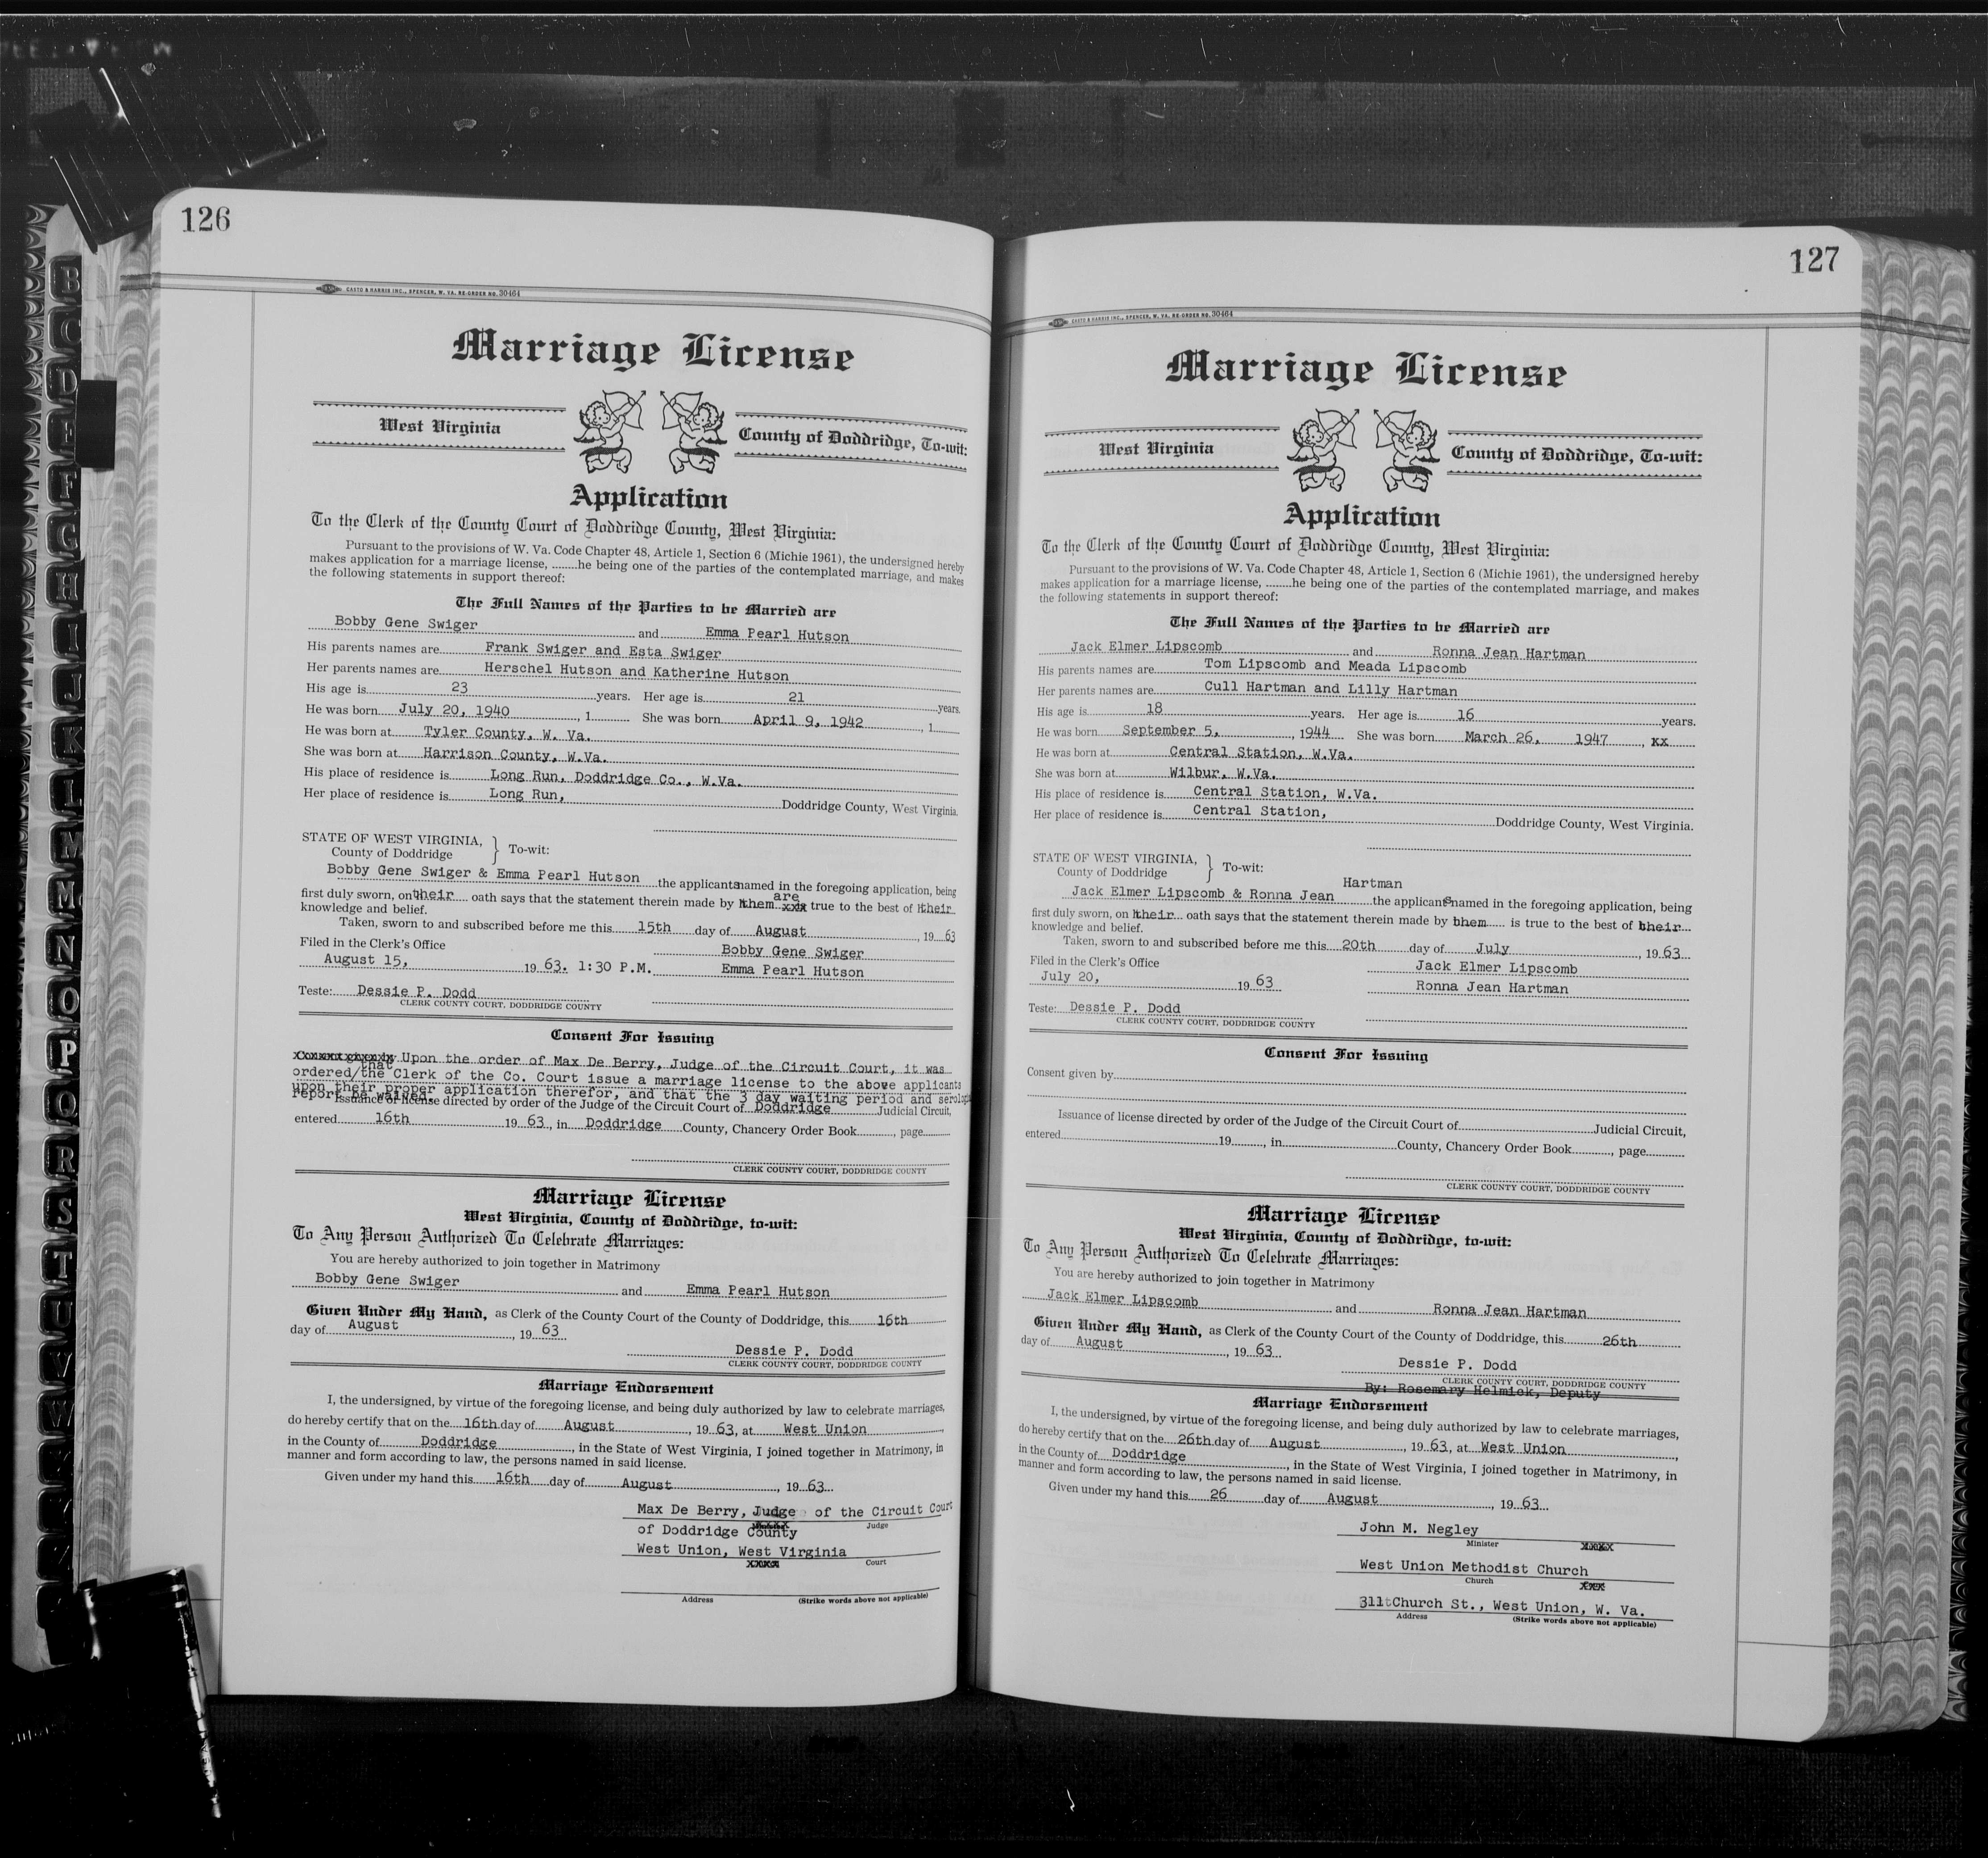 126
CASTO & HARRIS INC., SPENCER, W. VA. RE-ORDER NO. 30464
Marriage License
West Virginia
County of Doddridge, To-wit:
Application
To the Clerk of the County Court of Doddridge County, West Virginia:
Pursuant to the provisions of W. Va. Code Chapter 48, Article 1, Section 6 (Michie 1961), the undersigned hereby
makes application for a marriage license, ........he being one of the parties of the contemplated marriage, and makes
the following statements in support thereof:
The Full Names of the Parties to be Married are
Bobby Gene Swiger and Emma Pearl Hutson
His parents names are Frank Swiger and Esta Swiger
Her parents names are Herschel Hutson and Katherine Hutson
His age is 23 years. Her age is 21 years.
He was born July 20, 1940, 1 She was born April 9, 1942, 1
He was born at Tyler County, W. Va.
She was born at Harrison County, W.Va.
His place of residence is Long Run, Doddridge Co., W.Va.
Her place of residence is Long Run, Doddridge County, West Virginia.
STATE OF WEST VIRGINIA,
County of Doddridge } To-wit:
Bobby Gene Swiger & Emma Pearl Hutson the applicants named in the foregoing application, being
are
first duly sworn, on their oath says that the statement therein made by them xxx true to the best of their
knowledge and belief.
Taken, sworn to and subscribed before me this 15th day of August, 1963
Filed in the Clerk's Office Bobby Gene Swiger
August 15, 1963. 1:30 P.M. Emma Pearl Hutson
Teste: Dessie P. Dodd
CLERK COUNTY COURT, DODDRIDGE COUNTY
Consent For Issuing
Upon the order of Max De Berry, Judge of the Circuit Court, it was
that
ordered/the Clerk of the Co. Court issue a marriage license to the above applicants
upon their proper application therefor, and that the 3 day waiting period and
report be waived.
Issuance of license directed by order of the Judge of the Circuit Court of Doddridge Judicial Circuit,
entered 16th 1963, in Doddridge County, Chancery Order Book, page
CLERK COUNTY COURT, DODDRIDGE COUNTY
Marriage License
West Virginia, County of Doddridge, to-wit:
To Any Person Authorized To Celebrate Marriages:
You are hereby authorized to join together in Matrimony
Bobby Gene Swiger and Emma Pearl Hutson
Given Under My Hand, as Clerk of the County Court of the County of Doddridge, this 16th
day of August, 1963
Dessie P. Dodd
CLERK COUNTY COURT, DODDRIDGE COUNTY
Marriage Endorsement
I, the undersigned, by virtue of the foregoing license, and being duly authorized by law to celebrate marriages,
do hereby certify that on the 16th day of August, 1963, at West Union
in the County of Doddridge, in the State of West Virginia, I joined together in Matrimony, in
manner and form according to law, the persons named in said license.
Given under my hand this 16th day of August, 1963
Max De Berry, Judge of the Circuit Court
Judge
of Doddridge County
West Union, West Virginia
xxxx Court
Address (Strike words above not applicable)
127
CASTO & HARRIS INC., SPENCER, W. VA. RE-ORDER NO. 30464
Marriage License
West Virginia
County of Doddridge, To-wit:
Application
To the Clerk of the County Court of Doddridge County, West Virginia:
Pursuant to the provisions of W. Va. Code Chapter 48, Article 1, Section 6 (Michie 1961), the undersigned hereby
makes application for a marriage license, ........he being one of the parties of the contemplated marriage, and makes
the following statements in support thereof:
The Full Names of the Parties to be Married are
Jack Elmer Lipscomb and Ronna Jean Hartman
His parents names are Tom Lipscomb and Meada Lipscomb
Her parents names are Cull Hartman and Lilly Hartman
His age is 18 years. Her age is 16 years.
He was born September 5, 1944 She was born March 26, 1947, xx
He was born at Central Station, W.Va.
She was born at Wilbur, W.Va.
His place of residence is Central Station, W.Va.
Her place of residence is Central Station, Doddridge County, West Virginia.
STATE OF WEST VIRGINIA,
County of Doddridge } To-wit:
Hartman
Jack Elmer Lipscomb & Ronna Jean the applicants named in the foregoing application, being
first duly sworn, on their oath says that the statement therein made by them is true to the best of their
knowledge and belief.
Taken, sworn to and subscribed before me this 20th day of July, 1963
Filed in the Clerk's Office Jack Elmer Lipscomb
July 20, 1963 Ronna Jean Hartman
Teste: Dessie P. Dodd
CLERK COUNTY COURT, DODDRIDGE COUNTY
Consent For Issuing
Consent given by
Issuance of license directed by order of the Judge of the Circuit Court of Judicial Circuit,
entered 19, in County, Chancery Order Book, page
CLERK COUNTY COURT, DODDRIDGE COUNTY
Marriage License
West Virginia, County of Doddridge, to-wit:
To Any Person Authorized To Celebrate Marriages:
You are hereby authorized to join together in Matrimony
Jack Elmer Lipscomb and Ronna Jean Hartman
Given Under My Hand, as Clerk of the County Court of the County of Doddridge, this 26th
day of August, 1963
Dessie P. Dodd
CLERK COUNTY COURT, DODDRIDGE COUNTY
By: Rosemary Helmick, Deputy
Marriage Endorsement
I, the undersigned, by virtue of the foregoing license, and being duly authorized by law to celebrate marriages,
do hereby certify that on the 26th day of August, 1963, at West Union
in the County of Doddridge, in the State of West Virginia, I joined together in Matrimony, in
manner and form according to law, the persons named in said license.
Given under my hand this 26 day of August, 1963
John M. Negley
Minister xxxx
West Union Methodist Church
Church xxx
311 Church St., West Union, W. Va.
Address (Strike words above not applicable)
B
C
D
E
F
G
H
I
J
K
L
M
M
N
O
P
Q
R
S
T
U
V
W